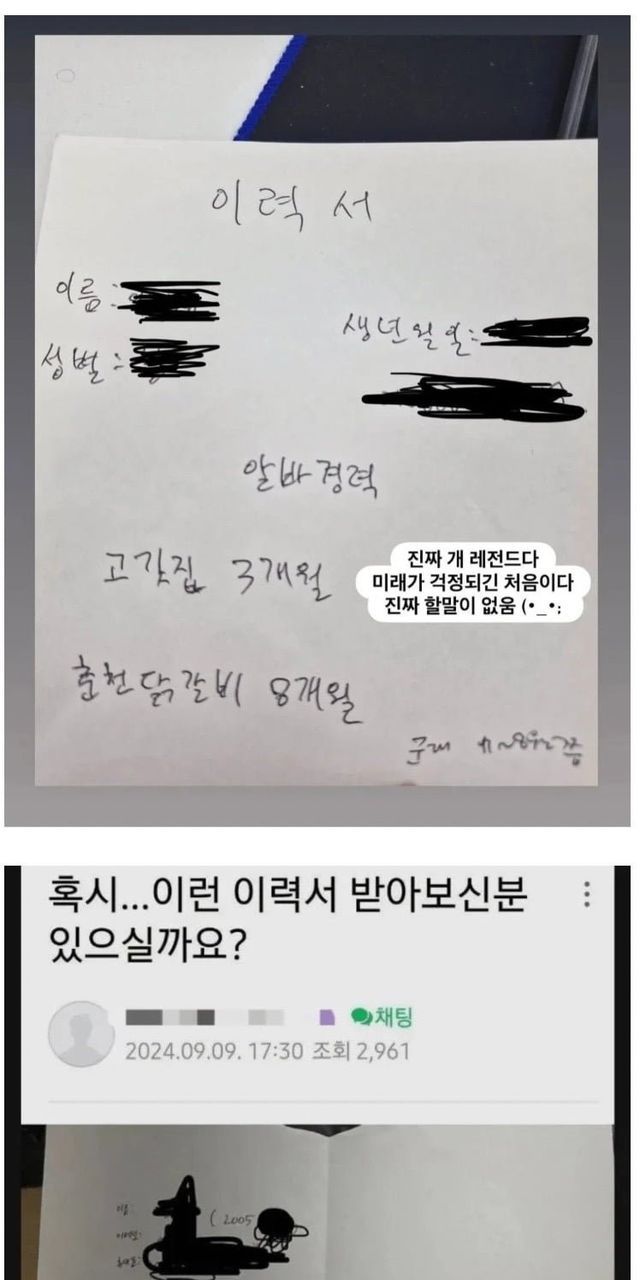 이 력 서
이름 :
생년월일 :
성별 :
알바경력
고깃집 3개월
진짜 개 레전드다
미래가 걱정되긴 처음이다
진짜 할말이 없움 (•_•;
춘천닭갈비 8개월
혹시...이런 이력서 받아보신분
있으실까요?
채팅
2024.09.09. 17:30 조회 2,961
이름:
( 2005